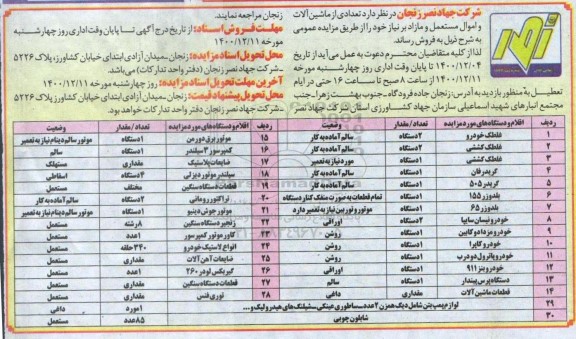 شرکت جهاد نصر زنجان در نظر دارد تعدادی از ماشین آلات
و اموال مستعمل و مازاد بر نیاز خود را از طریق مزایده عمومی
به شرح ذیل به فروش رساند.
لذا از کلیه متقاضیان محترم دعوت به عمل می‌آید از تاریخ
۱۴۰۰/۱۲/۰۴ تا پایان وقت اداری روز چهارشنبه مورخه
۱۴۰۰/۱۲/۱۱ از ساعت ۸ صبح تا ساعت ۱۶ حتی در ایام
تعطیل به منظور بازدید به آدرس: زنجان جاده فرودگاه-جنوب بهشت زهرا-جنب
مجتمع انبارهای شهید اسماعیلی سازمان جهاد کشاورزی استان-شرکت جهاد نصر
زنجان مراجعه نمایند.
مهلت فروش اسناد: از تاریخ درج آگهی تا پایان وقت اداری روز چهارشنبه
مورخه ۱۴۰۰/۱۲/۱۱
محل تحویل اسناد مزایده: زنجان-میدان آزادی ابتدای خیابان کشاورز، پلاک ۵۲۲۶
-شرکت جهاد نصر زنجان (دفتر واحد تدارکات) می‌باشد.
آخرین مهلت تحویل اسناد مزایده: روز چهارشنبه مورخه ۱۴۰۰/۱۲/۱۱
محل تحویل پیشنهاد قیمت: زنجان-میدان آزادی ابتدای خیابان کشاورز پلاک ۵۲۲۶
-شرکت جهاد نصر زنجان دفتر واحد تدارکات خواهد بود.
ردیف اقلام و دستگاه‌های مورد مزایده تعداد/مقدار وضعیت ردیف اقلام و دستگاه‌های مورد مزایده تعداد/مقدار وضعیت
۱ غلطک خودرو ۲دستگاه سالم آماده به کار ۱۵ موتور برق دورمن ۱دستگاه موتور سالم دینام نیاز به تعمیر
۲ غلطک کششی ۲دستگاه سالم آماده به کار ۱۶ کمپرسور ۳سیلندر ۱دستگاه سالم
۳ غلطک کششی ۱دستگاه مورد نیاز به تعمیر ۱۷ ضایعات پلاستیک مقداری مستهلک
۴ گریدر فان ۱دستگاه سالم آماده به کار ۱۸ سیلندر موتور دیزلی ۴دستگاه اسقاطی
۵ گریدر ۵۰۵ ۱دستگاه سالم آماده به کار ۱۹ قطعات دستگاه سنگین مختلف مستعمل
۶ بلدوزر ۱۵۵ ۱دستگاه تمام قطعات به صورت منفک کنار دستگاه ۲۰ تراکتور رومانی ۲دستگاه سالم آماده به کار
۷ بلدوزر ۶۵ ۱دستگاه موتور و توربین نیاز به تعمیر دارد ۲۱ موتور جوش دینیو ۱دستگاه موتور سالم دینام نیاز به تعمیر
۸ خودرو نیسان سایپا ۲دستگاه اوراقی ۲۲ زنجیر دستگاه سنگین ۸رشته مستعمل
۹ خودرو مزدا دو کابین ۱دستگاه روشن ۲۳ کاور موتور کمپرسور ۱عدد مستعمل
۱۰ خودرو کاپرا ۱دستگاه روشن ۲۴ انواع لاستیک خودرو ۳۴۰حلقه مستعمل
۱۱ خودرو پاترول دو درب ۱دستگاه روشن ۲۵ ضایعات آهن آلات مقداری مستعمل
۱۲ خودرو بنز ۹۱۱ ۱دستگاه اوراقی ۲۶ گیربکس لودر ۲۶۰ ۱عدد مستعمل
۱۳ دستگاه پرس پیندار ۱دستگاه سالم ۲۷ قطعات دستگاه سنگین مقداری مستعمل
۱۴ قطعات ماشین آلات مقداری داغی ۲۸ توری فنس مقداری مستعمل
۲۹ لوازم پمپ بتن شامل دیگ همزن ۲عدد-ساطوری عینکی-شیلنگ‌های هیدرولیک و... ۱مورد داغی
۳۰ شابلون چوبی ۸۵عدد مستعمل